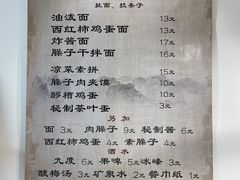 扯面、拉条子
油泼面 13元
西红柿鸡蛋面 15元
炸酱面 17元
臊子干拌面 16元
凉菜素拼 15元
臊子肉夹馍 10元
醪糟鸡蛋 10元
秘制茶叶蛋 3元
另加
面 3元 肉臊子 9元 秘制酱 6元
西红柿鸡蛋 4元 素臊子 4元
酒水
九度 6元 果啤 5元 冰峰 3元
酸梅汤 3元 矿泉水 2元 餐巾纸 1元